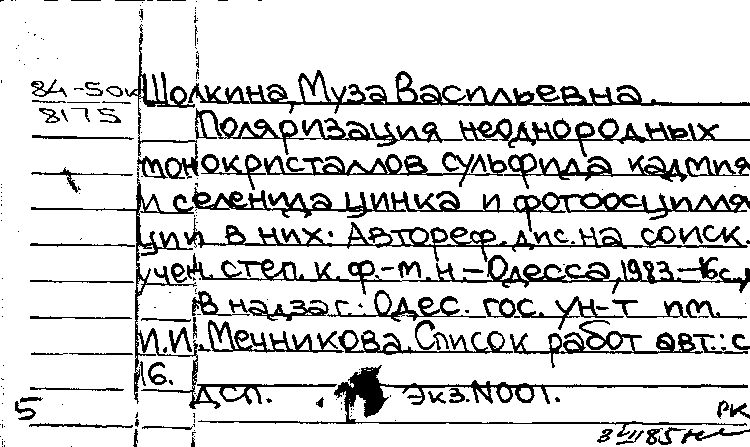 84-50к Щолкина, Муза Васильевна.
8175
Поляризация неоднородных
монокристаллов сульфида кадмия
и селенида цинка и фотоосцилля
ции в них: Автореф. дис. на соиск.
учен. степ. к. ф.-м. н. - Одесса, 1983. - 16 с.,
В надзаг.: Одес. гос. ун-т им.
И.И. Мечникова. Список работ авт.: с
16.
ДСП. Экз. N001.
5
РК